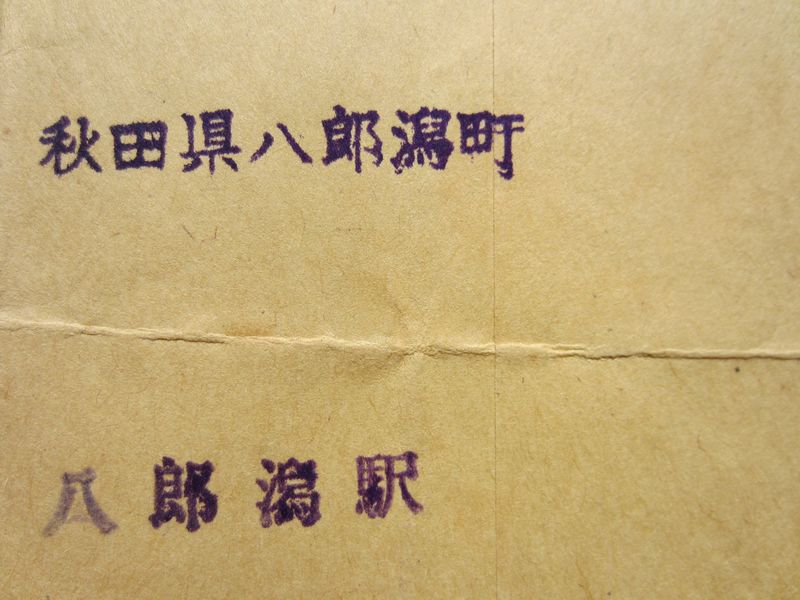 秋田県八郎潟町
八郎潟駅